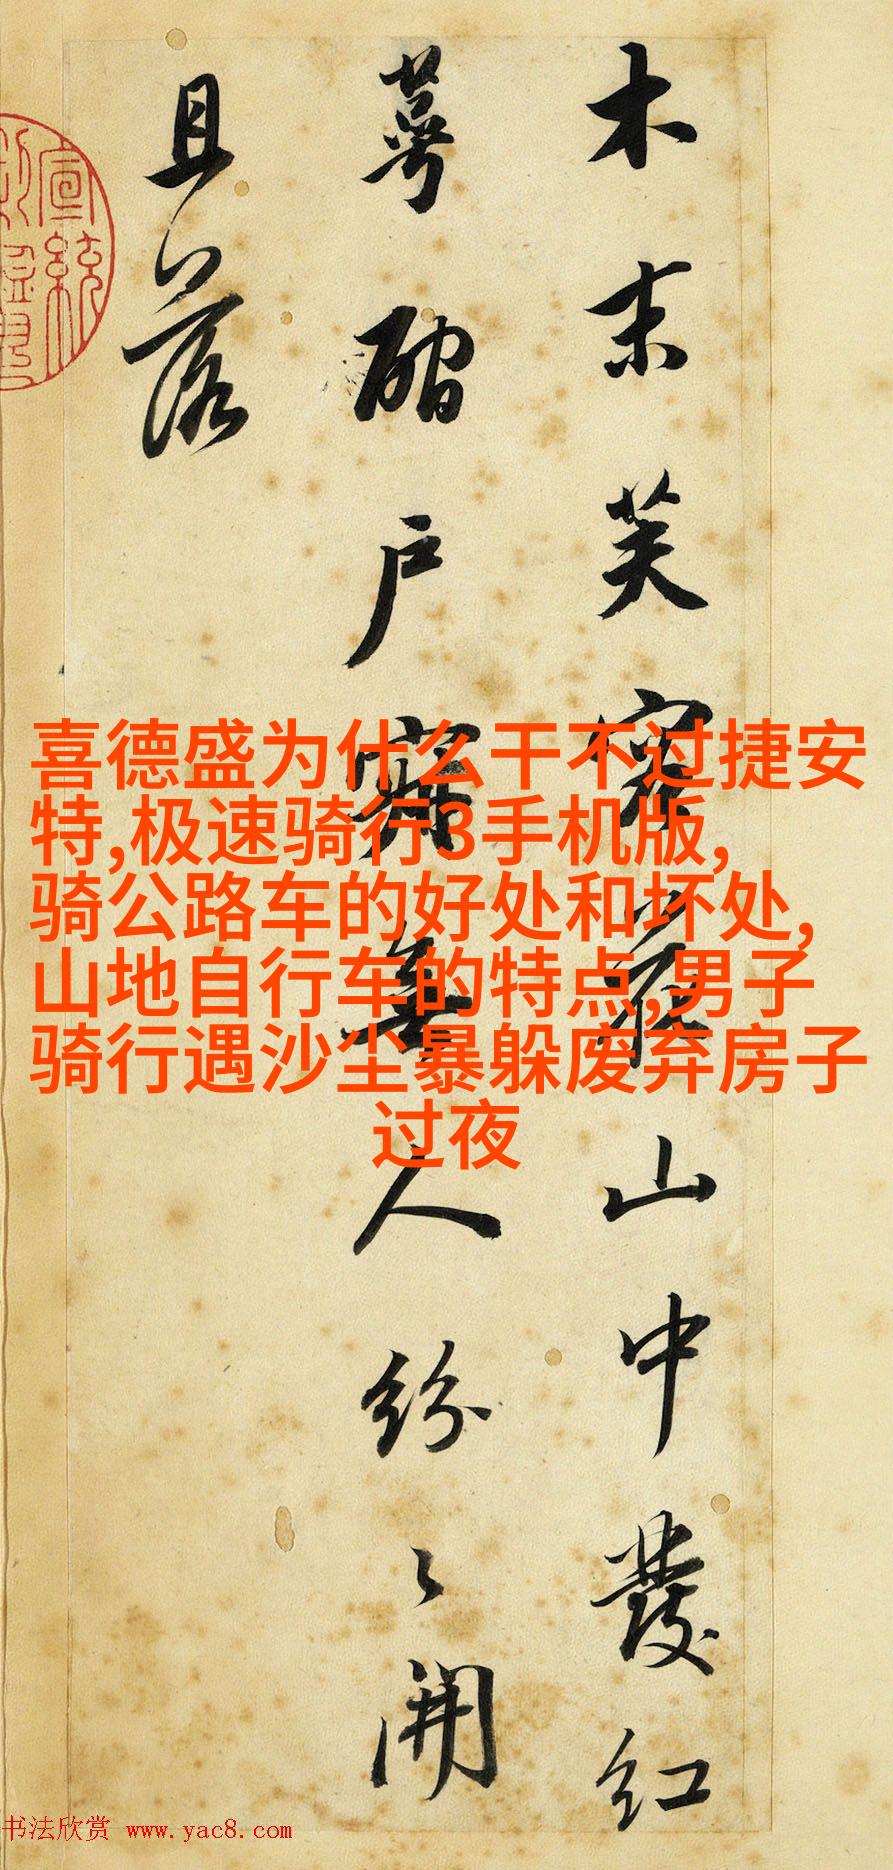 木末芙蓉花山中發紅
萼磵戶寂無人紛〻開
且落
宣統
喜德盛为什么干不过捷安
特,极速骑行3手机版,
骑公路车的好处和坏处,
山地自行车的特点,男子
骑行遇沙尘暴躲废弃房子
过夜
书法欣赏 www.yac8.com